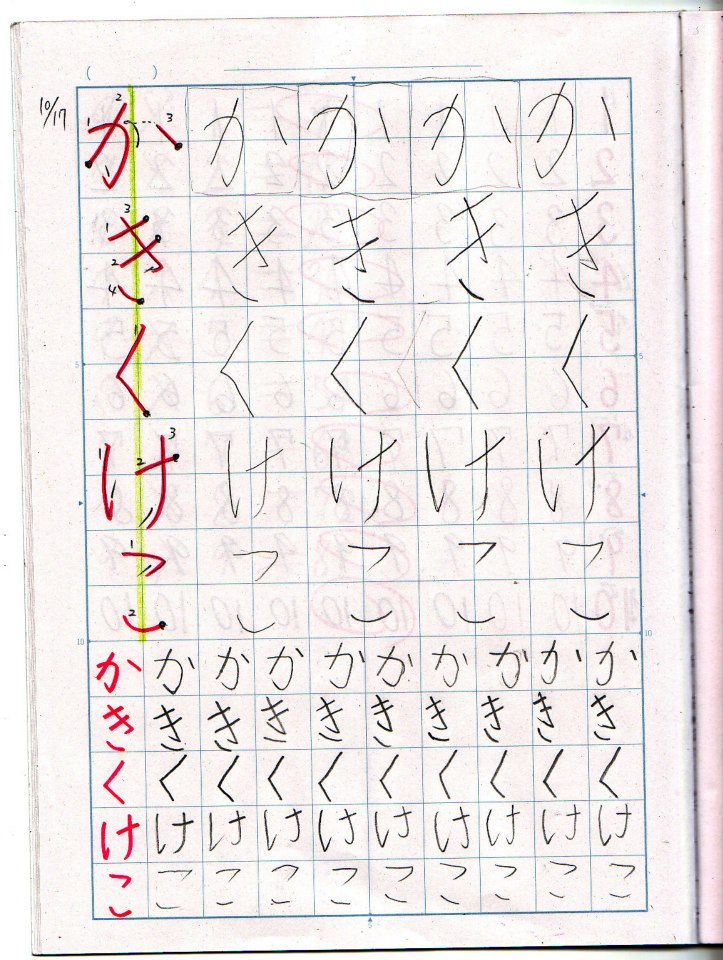 10/17
か か か か か
き き き き き
く く く く く
け け け け け
こ こ こ こ こ
か か か か か か か か か か
き き き き き き き き き き
く く く く く く く く く く
け け け け け け け け け け
こ こ こ こ こ こ こ こ こ こ